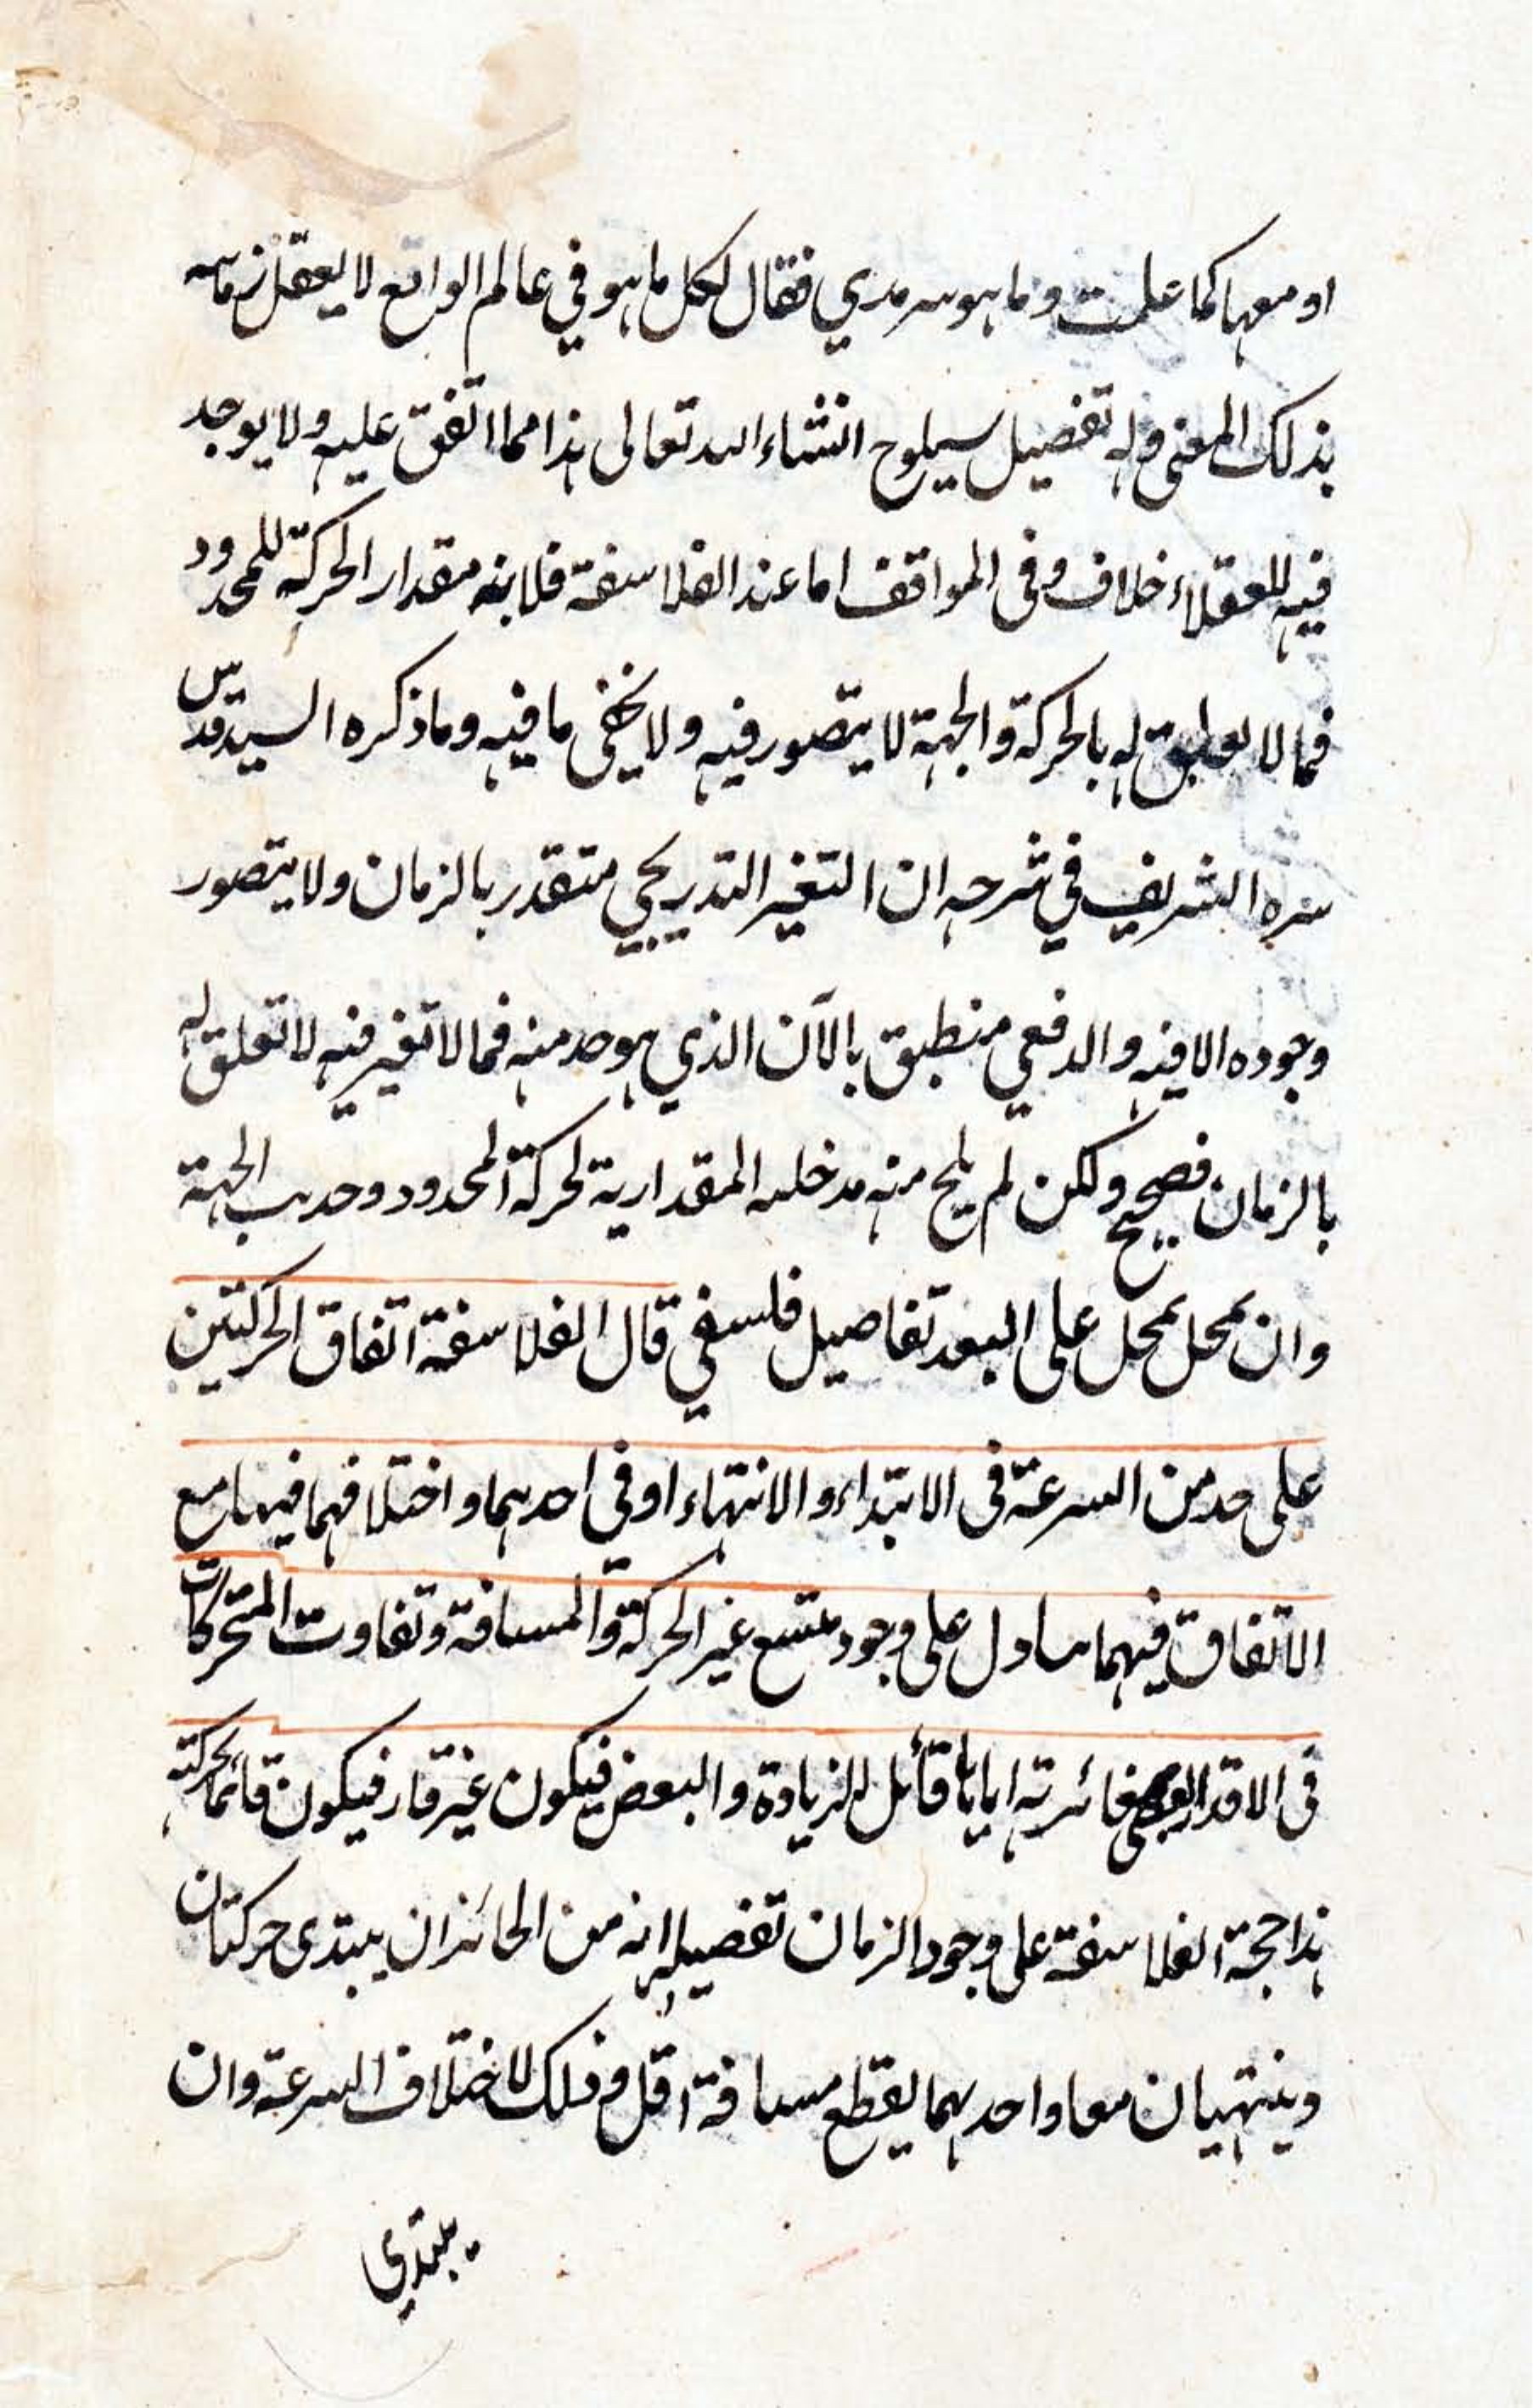 او معها كما علمت وما هو سرمدي فقال لكل ما هو في عالم الواقع لا يعقل زمانيه
بذلك المعنى وله تفصيل سيلوح انشاء الله تعالى هذا مما اتفق عليه ولا يوجد
فيه للعقلاء خلاف وفى المواقف اما عند الفلاسفة فلانه مقدار الحركة للمحدود
فما لا له بالحركة والجهة لا يتصور فيه ولا يخفى ما فيه وما ذكره السيد قدس
سره الشريف في شرحه ان التغير التدريجي متقدر بالزمان ولا يتصور
وجوده الا فيه والدفعي منطبق بالآن الذي هو حد منه فما لا تغير فيه لا تعلق له
بالزمان فصحيح ولكن لم يلح منه مدخليه المقدارية لحركة المحدود وحديث الجهة
وان تمحل بمحل على البعد تفاصيل فلسفي قال الفلاسفة اتفاق الحركتين
على حد من السرعة فى الابتداء والانتهاء او فى احدهما واختلافهما فيها مع
الاتفاق فيهما دل على وجود متسع غير الحركة والمسافة وتفاوت المتحركات
فى الاقدار اياها قابل للزيادة والبعض فيكون غير قار فيكون قائما بحركته
هذا حجة الفلاسفة على وجود الزمان تفصيله انه من الجائز ان يبتدى حركتان
وينتهيان معا واحدهما يقطع مسافة اقل وذلك لاختلاف السرعة وان
يبتدي